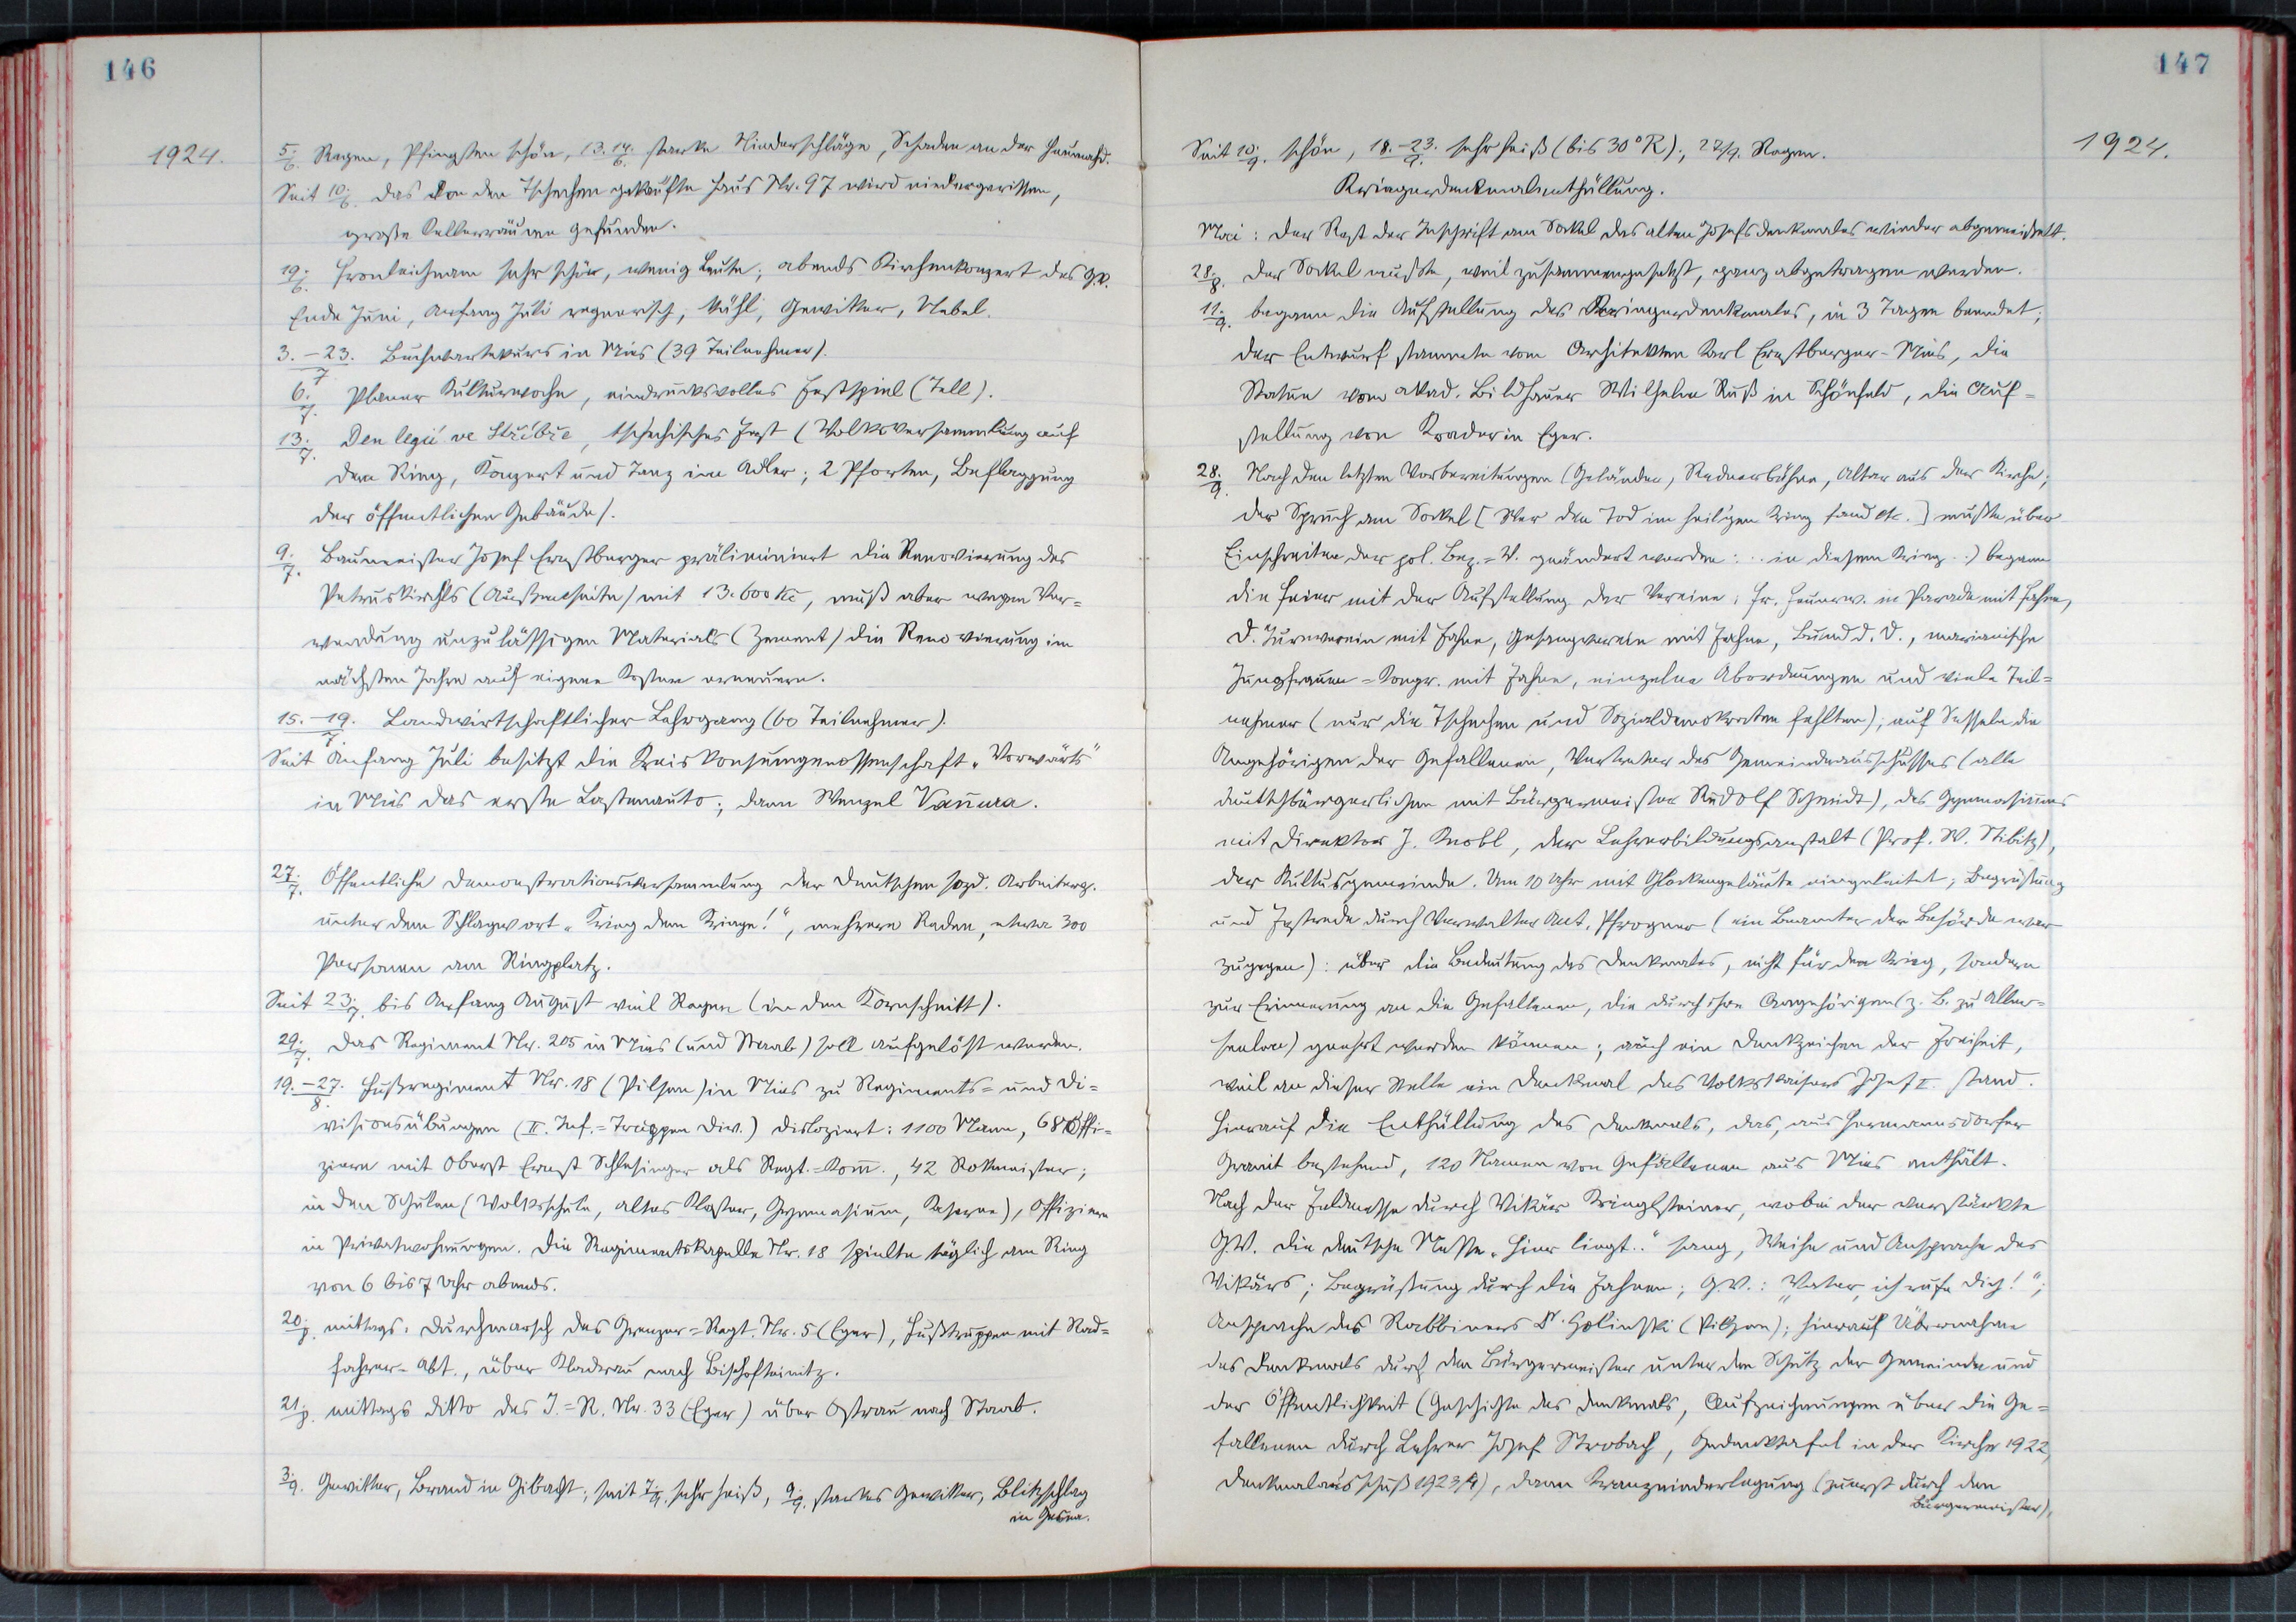 146
1924.
5./6. Regen, Pfingsten schön, 13. 14./6. starke Niederschläge, Schaden an der Heumahd.
Seit 10./6. das von den Tschechen gekaufte Haus Nr. 97 wird niedergerissen,
große Kellerräume gefunden.
19./6. Fronleichnam sehr schön, wenig Leute; abends Kirchenkonzert des G.V.
Ende Juni, Anfang Juli regnerisch, kühl, Gewitter, Nebel.
3.–23./7. Buchwartekurs in Mies (39 Teilnehmer).
6./7. Planer Kulturwoche, eindrucksvolles Festspiel (Tell).
13./7. Den legií ve Stříbře, tschechisches Fest (Volksversammlung auf
dem Ring, Konzert und Tanz im Adler; 2 Pforten, Beflaggung
der öffentlichen Gebäude).
9./7. Baumeister Josef Ernstberger präliminiert die Renovierung des
Petruskirchls (Außenseite) mit 13.600 Kč, muß aber wegen Ver=
wendung unzulässigen Materials (Zement) die Renovierung im
nächsten Jahre auf eigene Kosten erneuern.
15.–19./7. Landwirtschaftlicher Lehrgang (60 Teilnehmer).
Seit Anfang Juli besitzt die Kreiskonsumgenossenschaft „Vorwärts"
in Mies das erste Lastenauto; dann Wenzel Vaňura.
27./7. Öffentliche Demonstrationsversammlung der deutschen sozd. Arbeiterp.
unter dem Schlagwort „Krieg dem Kriege!", mehrere Reden, etwa 300
Personen am Ringplatz.
Seit 23./7. bis Anfang August viel Regen (in den Kornschnitt).
29./7. Das Regiment Nr. 205 in Mies (und Staab) soll aufgelöst werden.
19.–27./8. Fußregiment Nr. 18 (Pilsen) in Mies zu Regiments= und Di=
visionsübungen (II. Inf.=Truppen Div.) disloziert: 1100 Mann, 68 Offi=
ziere mit Oberst Ernst Schlesinger als Regt.=Kom., 42 Rotmeister;
in den Schulen (Volksschule, altes Kloster, Gymnasium, Kaserne), Offiziere
in Privatwohnungen. Die Regimentskapelle Nr. 18 spielte täglich am Ring
von 6 bis 7 Uhr abends.
20./8. mittags: Durchmarsch des Grenzer=Regt. Nr. 5 (Eger), Fußtruppen mit Rad=
fahrer-Abt., über Kladrau nach Bischofteinitz.
21./8. mittags ditto des I.=R. Nr. 33 (Eger) über Ostrau nach Staab.
3./9. Gewitter, Brand in Gibacht; seit 7./9. sehr heiß, 9./9. starkes Gewitter, Blitzschlag
in
147
1924.
Seit 10./9. schön, 18.–23./9. sehr heiß (bis 30°R); 27/9. Regen.
Kriegerdenkmalenthüllung.
Mai: Der Rest der Inschrift am Sockel des alten Josefsdenkmales wieder abgemeißelt.
28./8. Der Sockel mußte, weil zusammengesetzt, ganz abgetragen werden.
11./9. begann die Aufstellung des Kriegerdenkmales, in 3 Tagen beendet;
der Entwurf stammte vom Architekten Karl Ernstberger-Mies, die
Statue vom akad. Bildhauer Wilhelm Ruß in Schönfeld, die Auf=
stellung von Krader in Eger.
28./9. Nach den letzten Vorbereitungen (Geländer, Rednerbühne, Altar aus der Kirche;
der Spruch am Sockel [Wer den Tod im heil'gen Krieg fand etc.] mußte über
Einschreiten der pol. Bez.=V. geändert werden: .. in diesem Krieg ..) begann
die Feier mit der Aufstellung der Vereine: fr. Feuerw. in Parade mit Fahne,
D. Turnverein mit Fahne, Gesangverein mit Fahne, Bund d. D., marianische
Jungfrauen=Kongr. mit Fahne, einzelne Abordnungen und viele Teil=
nehmer (nur die Tschechen und Sozialdemokraten fehlten); auf Sesseln die
Angehörigen der Gefallenen, Vertreter des Gemeindeausschusses (alle
deutschbürgerlichen mit Bürgermeister Rudolf Schmidt), des Gymnasiums
mit Direktor J. Knobl, der Lehrerbildungsanstalt (Prof. W. Stibitz),
der Kultusgemeinde. Um 10 Uhr mit Glockengeläute eingeleitet; Begrüßung
und Festrede durch Verwalter Ant. Pfrogner (ein Beamter der Behörde war
zugegen): über die Bedeutung des Denkmales, nicht für den Krieg, sondern
zur Erinnerung an die Gefallenen, die durch ihre Angehörigen (z. B. zu Aller=
seelen) geehrt werden können; auch ein Denkzeichen der Freiheit,
weil an dieser Stelle ein Denkmal des Volkskaisers Josef II. stand.
Hierauf die Enthüllung des Denkmals, das, aus Hermannsdorfer
Granit bestehend, 120 Namen von Gefallenen aus Mies enthält.
Nach der Feldmesse durch Vikär Krieglsteiner, wobei der verstärkte
GV. die deutsche Messe „Hier liegt.." sang, Weihe und Ansprache des
Vikärs; Begrüßung durch die Fahnen; G.V.: „Vater, ich rufe dich!";
Ansprache des Rabbiners Dr. Golinski (Pilsen); hierauf Übernahme
des Denkmals durch den Bürgermeister unter den Schutz der Gemeinde und
der Öffentlichkeit (Geschichte des Denkmals, Aufzeichnungen über die Ge=
fallenen durch Lehrer Josef Strobach, Gedenktafel in der Kirche 1922,
Denkmalausschuß 1923/4), dann Kranzniederlegung (zuerst durch den
Bürgermeister),